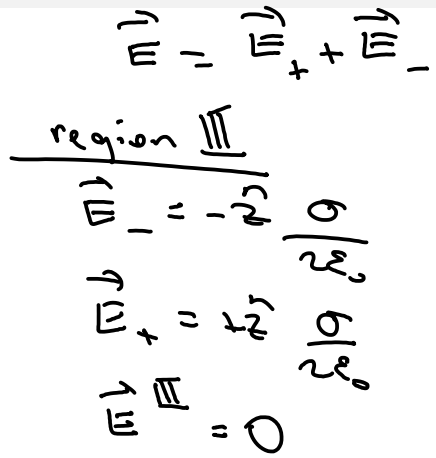 $\vec{E} = \vec{E}_+ + \vec{E}_-$
region III
$\vec{E}_- = -\hat{z} \frac{\sigma}{2\varepsilon_0}$
$\vec{E}_+ = +\hat{z} \frac{\sigma}{2\varepsilon_0}$
$\vec{E}^{III} = 0$